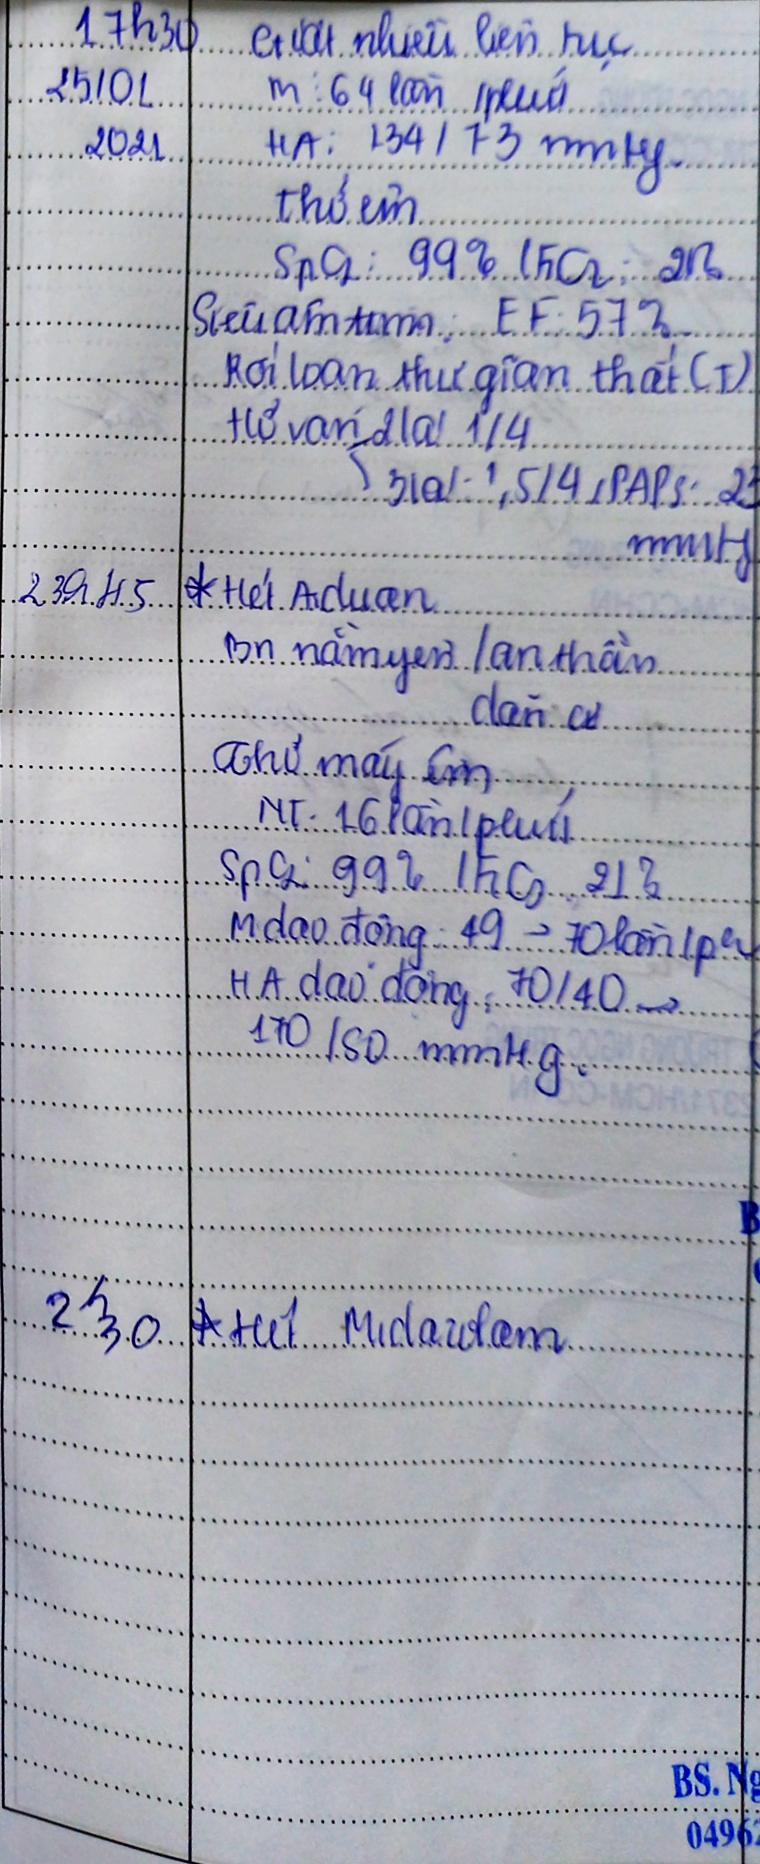 17h30 Giật nhiều liên tục
25/01 M: 64 lần /phút
2021 HA: 134/73 mmHg
thở êm
SpO2: 99% /FiO2: 21%
Siêu âm tim: EF: 57%
Rối loạn thư giãn thất (T)
Hở van 2 lá 1/4
3 lá: 1,5/4, PAPs: 23
mmH
23h45 * Hết Aduan
Bn nằm yên /an thần
dãn cơ
Thở máy êm
NT: 16 lần/phút
SpO2: 99% /FiO2 21%
M dao động: 49 → 70 lần/ph
HA dao động: 70/40 →
170/80 mmHg.
B
2h30 * Hết Midazolam
BS. Ng
0496